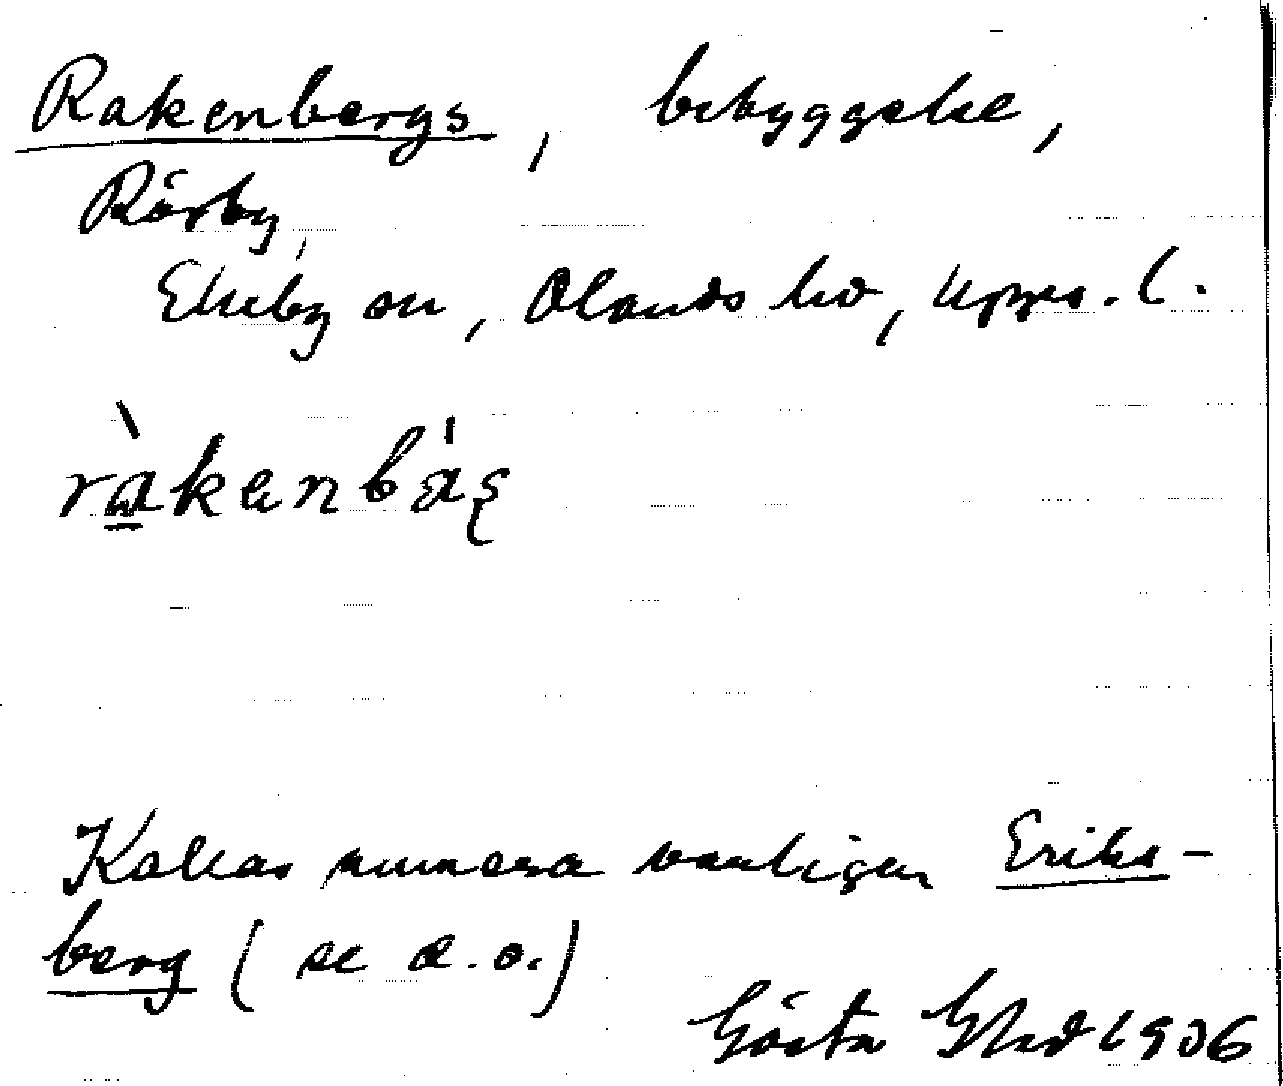 Rakenbergs, bebyggelse,
Rörby,
Ekeby sn, Olands hd, Upps. l.
ràkenbá̢ȩ
Kallas numera vanligen Eriks-
berg (se d. o.)
Gösta 1936